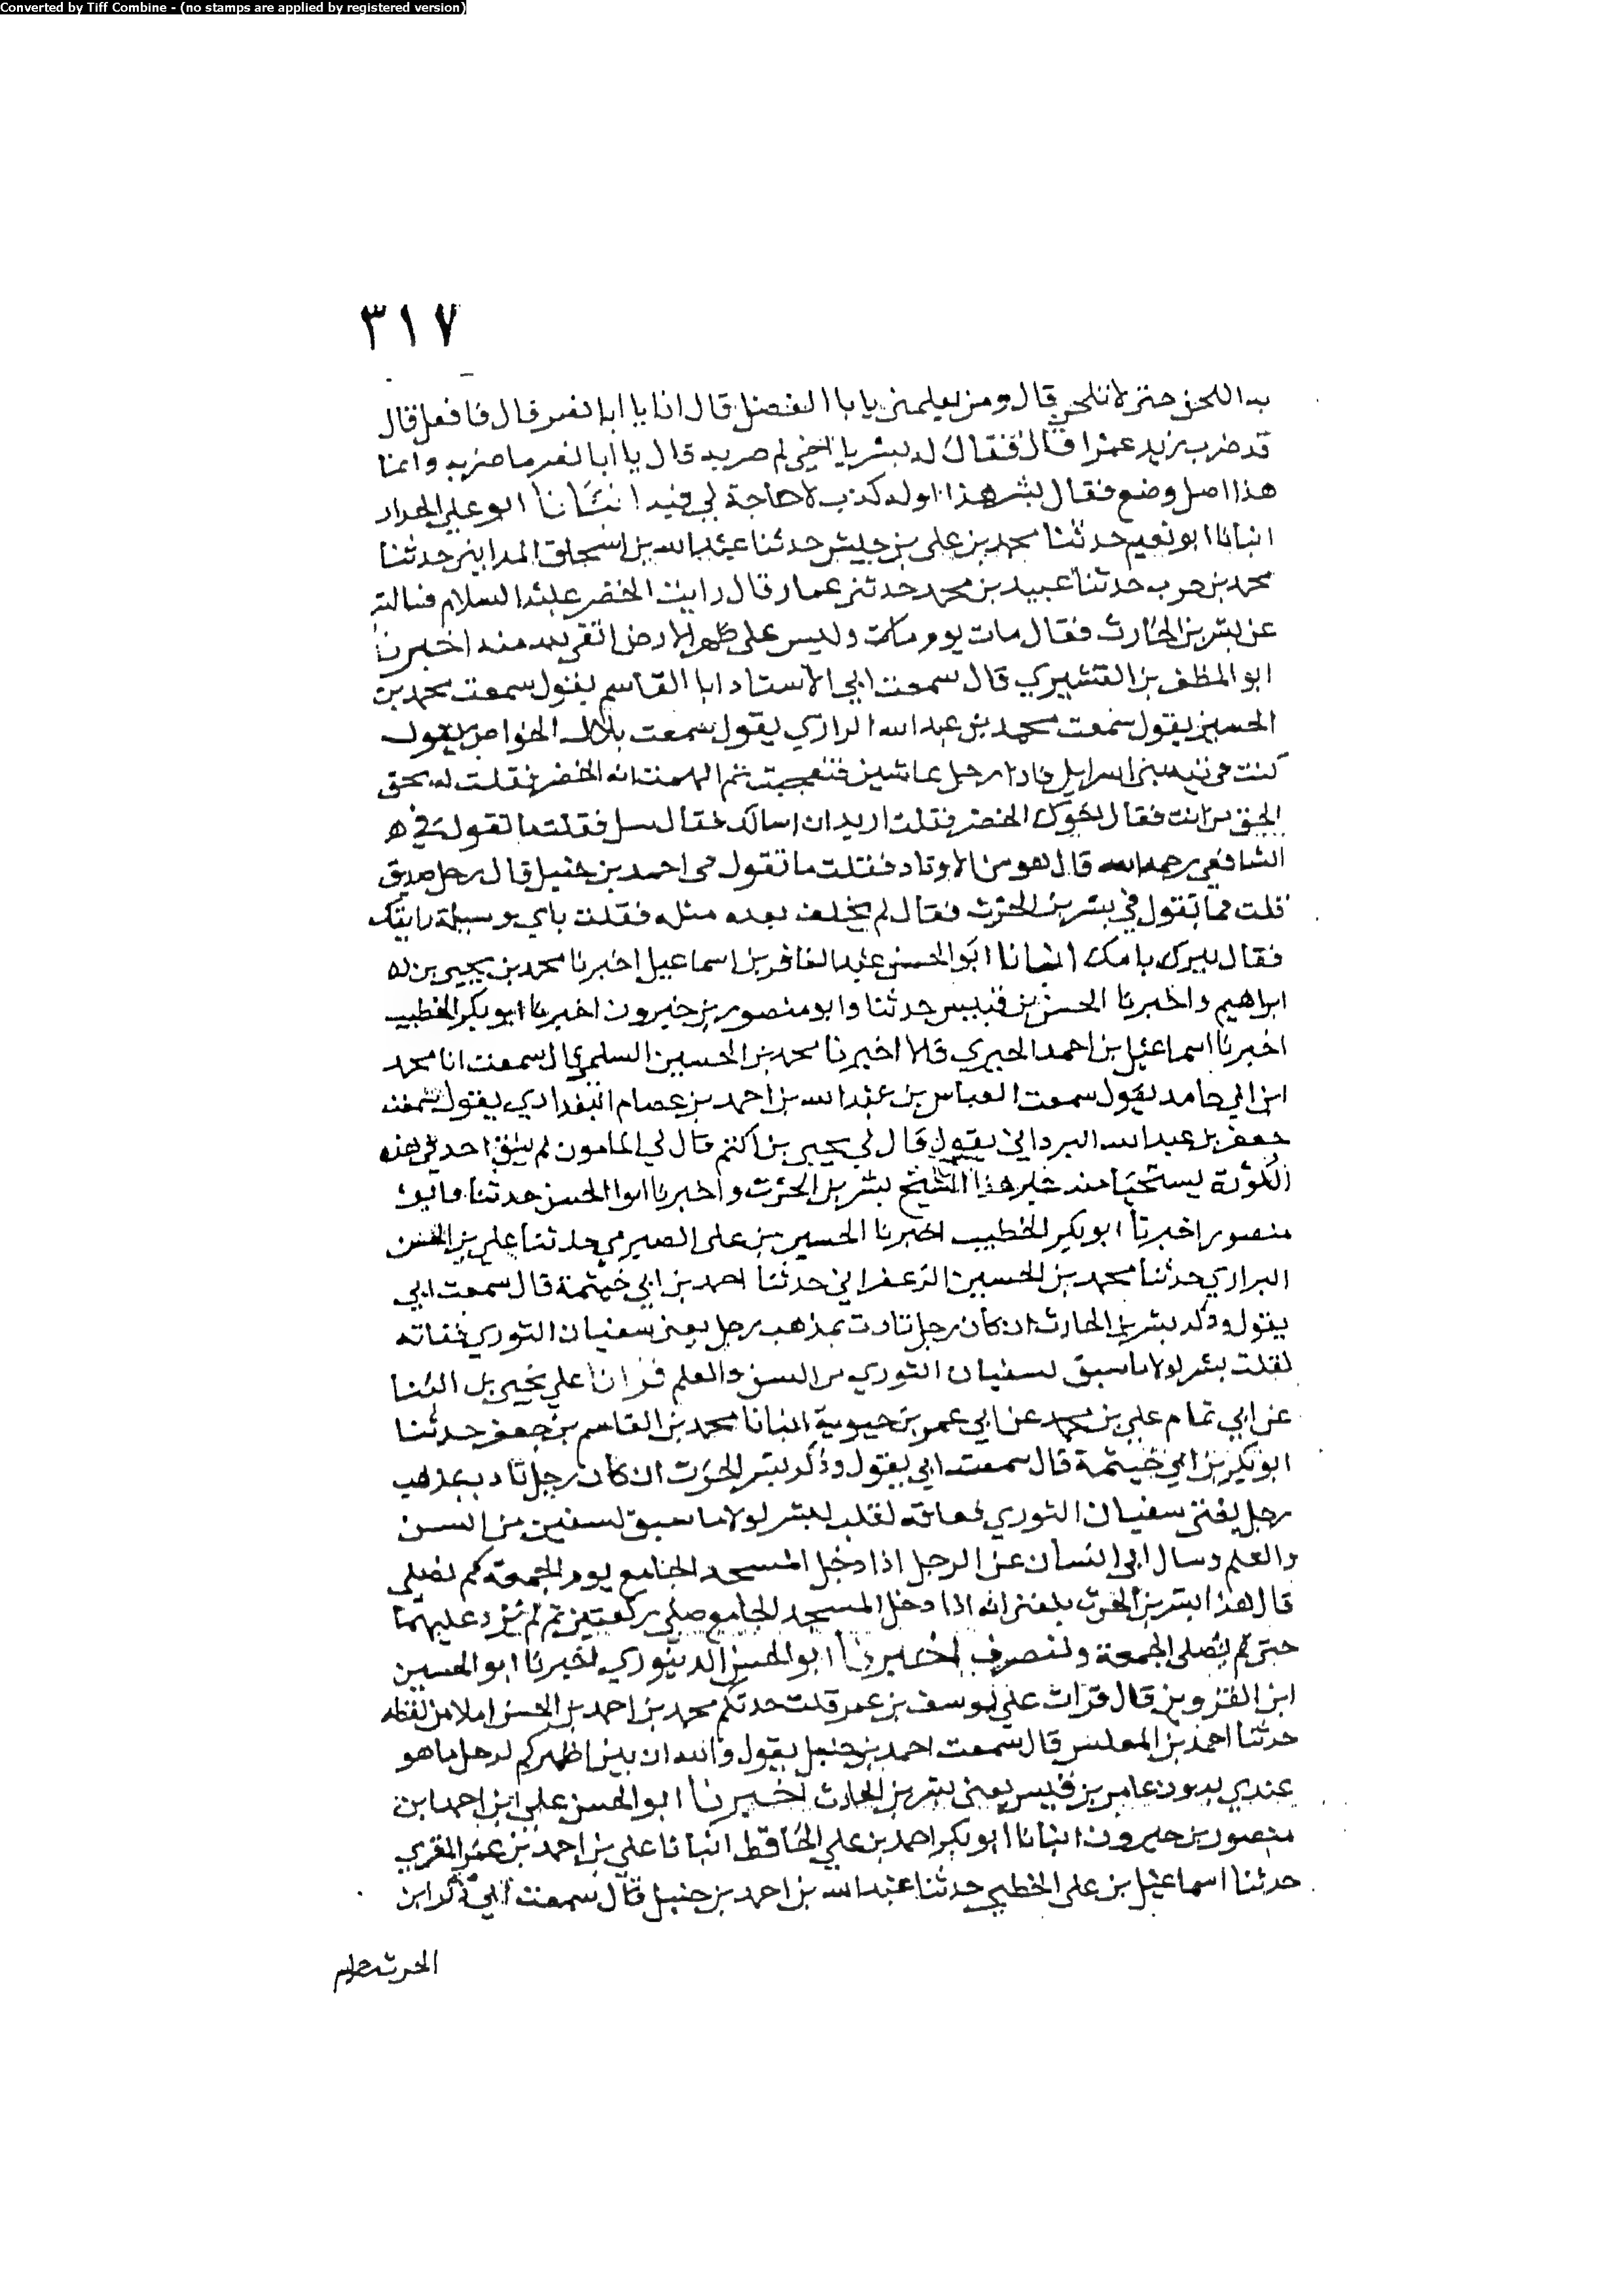 Converted by Tiff Combine - (no stamps are applied by registered version)
٣١٧
به اللحن حتى لا تلحن قال ومن يعلمني يا با الفضل قال انا يا ابا نصر قال فافعل قال
قد ضرب زيد عمرا قال فقال له بشر يا اخي لم ضربه قال يا ابا نصر ما ضربه وانما
هذا اصل وضع فقال بشر هذا اوله كذب لا حاجة لي فيه انبانا ابو علي الحداد
انبانا ابو نعيم حدثنا محمد بن علي بن حبيش حدثنا عبد الله بن اسحاق المدايني حدثنا
محمد بن حرب حدثنا عبيد بن محمد حدثني عمار قال رايت الخضر عليه السلام فسالته
عن بشر بن الحارث فقال مات يوم مات وليس على ظهر الارض اتقى لله منه اخبرنا
ابو المظفر بن القشيري قال سمعت ابي الاستاد ابا القاسم يقول سمعت محمد بن
الحسين يقول سمعت محمد بن عبد الله الرازي يقول سمعت بلال الخواص يقول
كنت في تيه بني اسرايل فاذا رجل يماشيني فتعجبت ثم الهمت انه الخضر فقلت له بحق
الحق من انت فقال اخوك الخضر فقلت اريد ان اسالك فقال سل فقلت ما تقول في
الشافعي رحمه الله قال هو من الاوتاد فقلت ما تقول في احمد بن حنبل قال رجل صديق
قلت فما تقول في بشر بن الحرث فقال لم يخلف بعده مثله فقلت باي وسيلة رايتك
فقال ببرك بامك انبانا ابو الحسن عبد الغافر بن اسماعيل اخبرنا محمد بن يحيى بن
ابراهيم واخبرنا الحسن بن قبيس حدثنا وابو منصور بن خيرون اخبرنا ابو بكر الخطيب
اخبرنا اسماعيل بن احمد الحيري قالا اخبرنا محمد بن الحسين السلمي قال سمعت انا محمد
ابن ابي حامد يقول سمعت العباس بن عبد الله بن احمد بن عصام البغدادي يقول سمعت
جعفر بن عبد الله البرداني يقول قال لي يحيى بن اكثم قال لي المامون لم يبق احد في هذه
الكورة يستحيا منه غير هذا الشيخ بشر بن الحرث واخبرنا ابو الحسن حدثنا وابو
منصور اخبرنا ابو بكر الخطيب اخبرنا الحسين بن علي الصيمري حدثنا علي بن الحسن
الرازي حدثنا محمد بن الحسين الزعفراني حدثنا احمد بن ابي خيثمة قال سمعت ابي
يقول وذكر بشر بن الحارث ان كان رجل تادب بمذهب رجل يعني سفيان الثوري ففاته
لقلت بشر لولا ما سبق لسفيان الثوري من السن والعلم قرانا على يحيى بن البنا
عن ابي تمام علي بن محمد عن ابي عمر بن حيوية انبانا محمد بن القاسم بن جعفر حدثنا
ابو بكر بن ابي خيثمة قال سمعت ابي يقول وذكر بشر الحرث ان كان رجل تادب بمذهب
رجل يعني سفيان الثوري ففاته لقلت بشر لولا ما سبق لسفين من السن
والعلم وسال ابي انسان عن الرجل اذا دخل المسجد الجامع يوم الجمعة كم يصلي
قال هذا بشر بن الحرث بلغني انه اذا دخل المسجد الجامع صلى ركعتين ثم لم يزد عليهما
حتى يصلي الجمعة وينصرف اخبرنا ابو الحسن الدينوري اخبرنا ابو الحسين
ابن القزويني قال قرات على يوسف بن عمر قلت حدثكم محمد بن احمد بن الحسن املا من لفظه
حدثنا احمد بن المغلس قال سمعت احمد بن حنبل يقول والله ان بين اظهركم لرجل ما هو
عندي بدون عامر بن قيس يعني بشر بن الحارث اخبرنا ابو الحسن علي بن احمد ابن
منصور بن خيرون انبانا ابو بكر احمد بن علي الحافظ انبانا علي بن احمد بن عمر المقري
حدثنا اسماعيل بن علي الخطبي حدثنا عبد الله بن احمد بن حنبل قال سمعت ابي ذكر ابن
الحرث